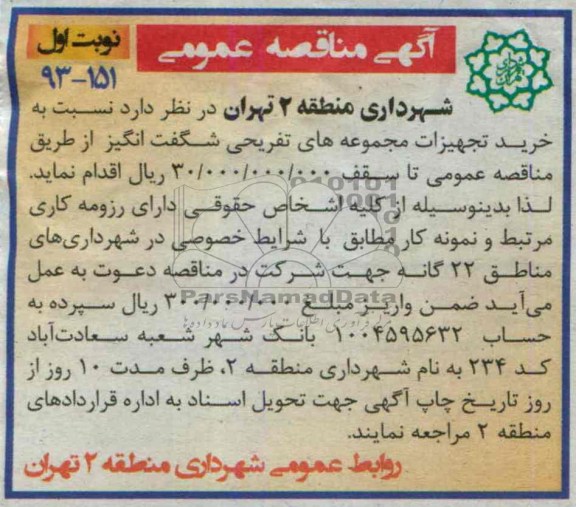 آگهی مناقصه عمومی
نوبت اول
۹۳-۱۵۱
شهرداری منطقه ۲ تهران در نظر دارد نسبت به
خرید تجهیزات مجموعه های تفریحی شگفت انگیز از طریق
مناقصه عمومی تا سقف ۳۰/۰۰۰/۰۰۰/۰۰۰ ریال اقدام نماید.
لذا بدینوسیله از کلیه اشخاص حقوقی دارای رزومه کاری
مرتبط و نمونه کار مطابق با شرایط خصوصی در شهرداری‌های
مناطق ۲۲ گانه جهت شرکت در مناقصه دعوت به عمل
ParsNamadData
می‌آید ضمن واریز مبلغ ریال سپرده به
حساب ۱۰۰۴۵۹۵۶۳۲ بانک شهر شعبه سعادت‌آباد
کد ۲۳۴ به نام شهرداری منطقه ۲، ظرف مدت ۱۰ روز از
روز تاریخ چاپ آگهی جهت تحویل اسناد به اداره قراردادهای
منطقه ۲ مراجعه نمایند.
روابط عمومی شهرداری منطقه ۲ تهران